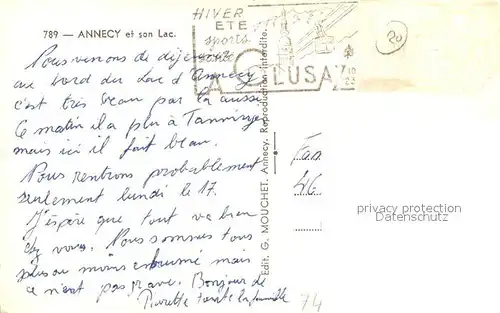 789 — ANNECY et son Lac.
HIVER
ETE
sports
LA CLUSAZ
20
Nous venons de déjeuner
au bord du Lac d'Annecy
c'est très beau par là aussi
Ce matin il a plu à Taninges
mais ici il fait beau.
Nous rentrons probablement
seulement lundi le 17.
J'espère que tout va bien
chez vous. Nous sommes tous
plus ou moins enrhumé mais
ce n'est pas grave. Bonjour de
Pierrette toute la famille
74
Edit. G. MOUCHET Annecy. Reproduction interdite.
Fam
46
privacy protection
Datenschutz